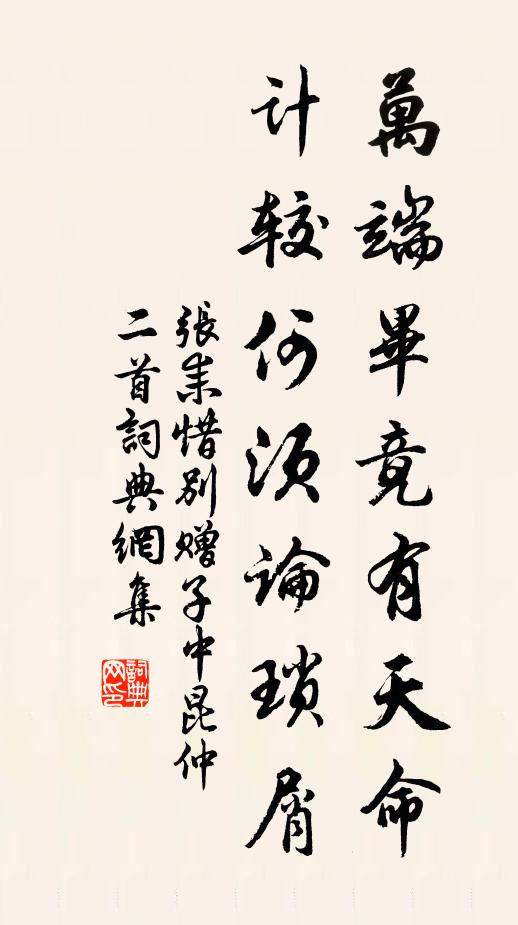 萬端畢竟有天命
计較何須論瑣屑
張耒惜別贈子中昆仲
二首詞典網集
詞典网印